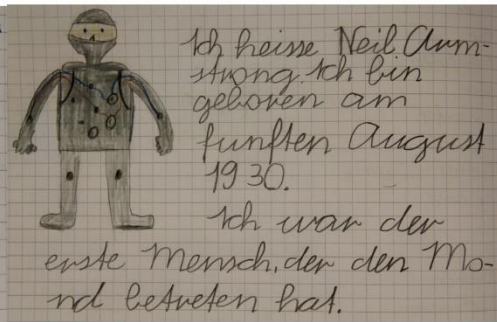 Ich heisse Neil Arm-
strong. Ich bin
geboren am
funften August
1930.
Ich war der
erste Mensch, der den Mo-
nd betreten hat.